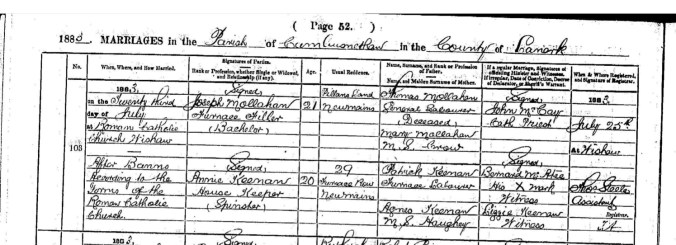 ( Page 52. )
1883. MARRIAGES in the Parish of in the County of Lanark
No.
When, Where, and How Married.
Signatures of Parties.
Rank or Profession, whether Single or Widowed, and Relationship (if any).
Age.
Usual Residence.
Name, Surname, and Rank or Profession of Father.
Name, and Maiden Surname of Mother.
If a regular Marriage, Signatures of officiating Minister and Witnesses.
If irregular, Date of Conviction, Decree of Declarator, or Sheriff's Warrant.
When & Where Registered, and Signature of Registrar.
103
1883,
on the Twenty third
day of July
at Roman Catholic
Church Wishaw
After Banns
According to the
Forms of the
Roman Catholic
Church
Signed
Joseph Mollahan
Furnace Filler
(Bachelor)
21
Newmains
Thomas Mollahan
General Labourer
Deceased,
Mary Mollahan
M.S.
Signed,
John McCay
Cath Priest
1883,
July 25th
At Wishaw
Signed
Annie Keenan
House Keeper
(Spinster)
20
29
Furnace Row
Newmains
Patrick Keenan
Furnace Labourer
Agnes Keenan
M.S. Haughey
Signed,
Bernard McAtee
His X mark
Witness
Lizzie Keenan
Witness
Assistant
Registrar.